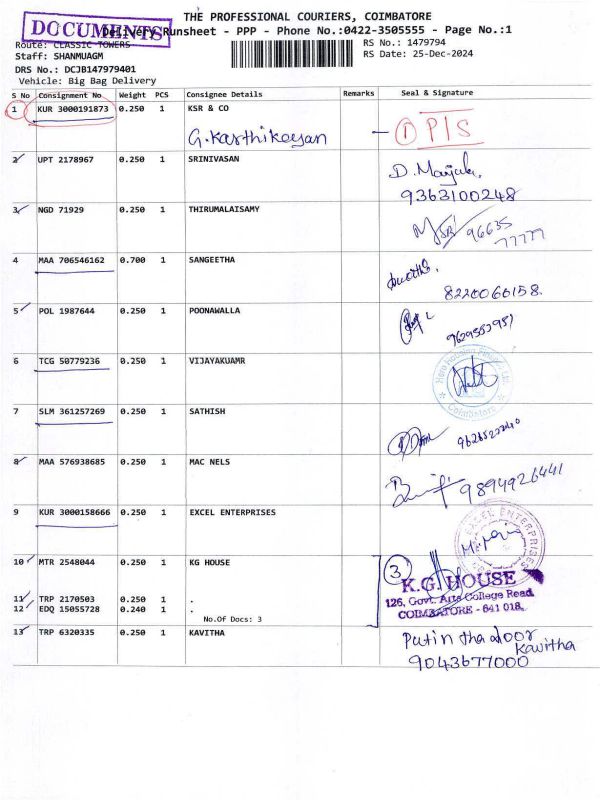 THE PROFESSIONAL COURIERS, COIMBATORE
DOCUMENTS
Delivery Runsheet - PPP - Phone No.:0422-3505555 - Page No.:1
Route: CLASSIC TOWERS
RS No.: 1479794
Staff: SHANMUAGM
RS Date: 25-Dec-2024
DRS No.: DCJB147979401
Vehicle: Big Bag Delivery
S No Consignment No Weight PCS Consignee Details Remarks Seal & Signature
1 KUR 3000191873 0.250 1 KSR & CO
G. Karthikeyan
① P/S
2 UPT 2178967 0.250 1 SRINIVASAN
D. Manjula
9363100248
3 NGD 71929 0.250 1 THIRUMALAISAMY
96635
77777
4 MAA 706546162 0.700 1 SANGEETHA
8220060158
5 POL 1987644 0.250 1 POONAWALLA
6 TCG 50779236 0.250 1 VIJAYAKUAMR
Hero Housing Finance Ltd.
Coimbatore
7 SLM 361257269 0.250 1 SATHISH
8 MAA 576938685 0.250 1 MAC NELS
9894926441
9 KUR 3000158666 0.250 1 EXCEL ENTERPRISES
EXCEL ENTERPRISES
10 MTR 2548044 0.250 1 KG HOUSE
③
K.G. HOUSE
126, Govt. Arts College Road,
COIMBATORE - 641 018.
11 TRP 2170503 0.250 1 .
12 EDQ 15055728 0.240 1 .
No.Of Docs: 3
13 TRP 6320335 0.250 1 KAVITHA
Put in the door
Kavitha
9043677000